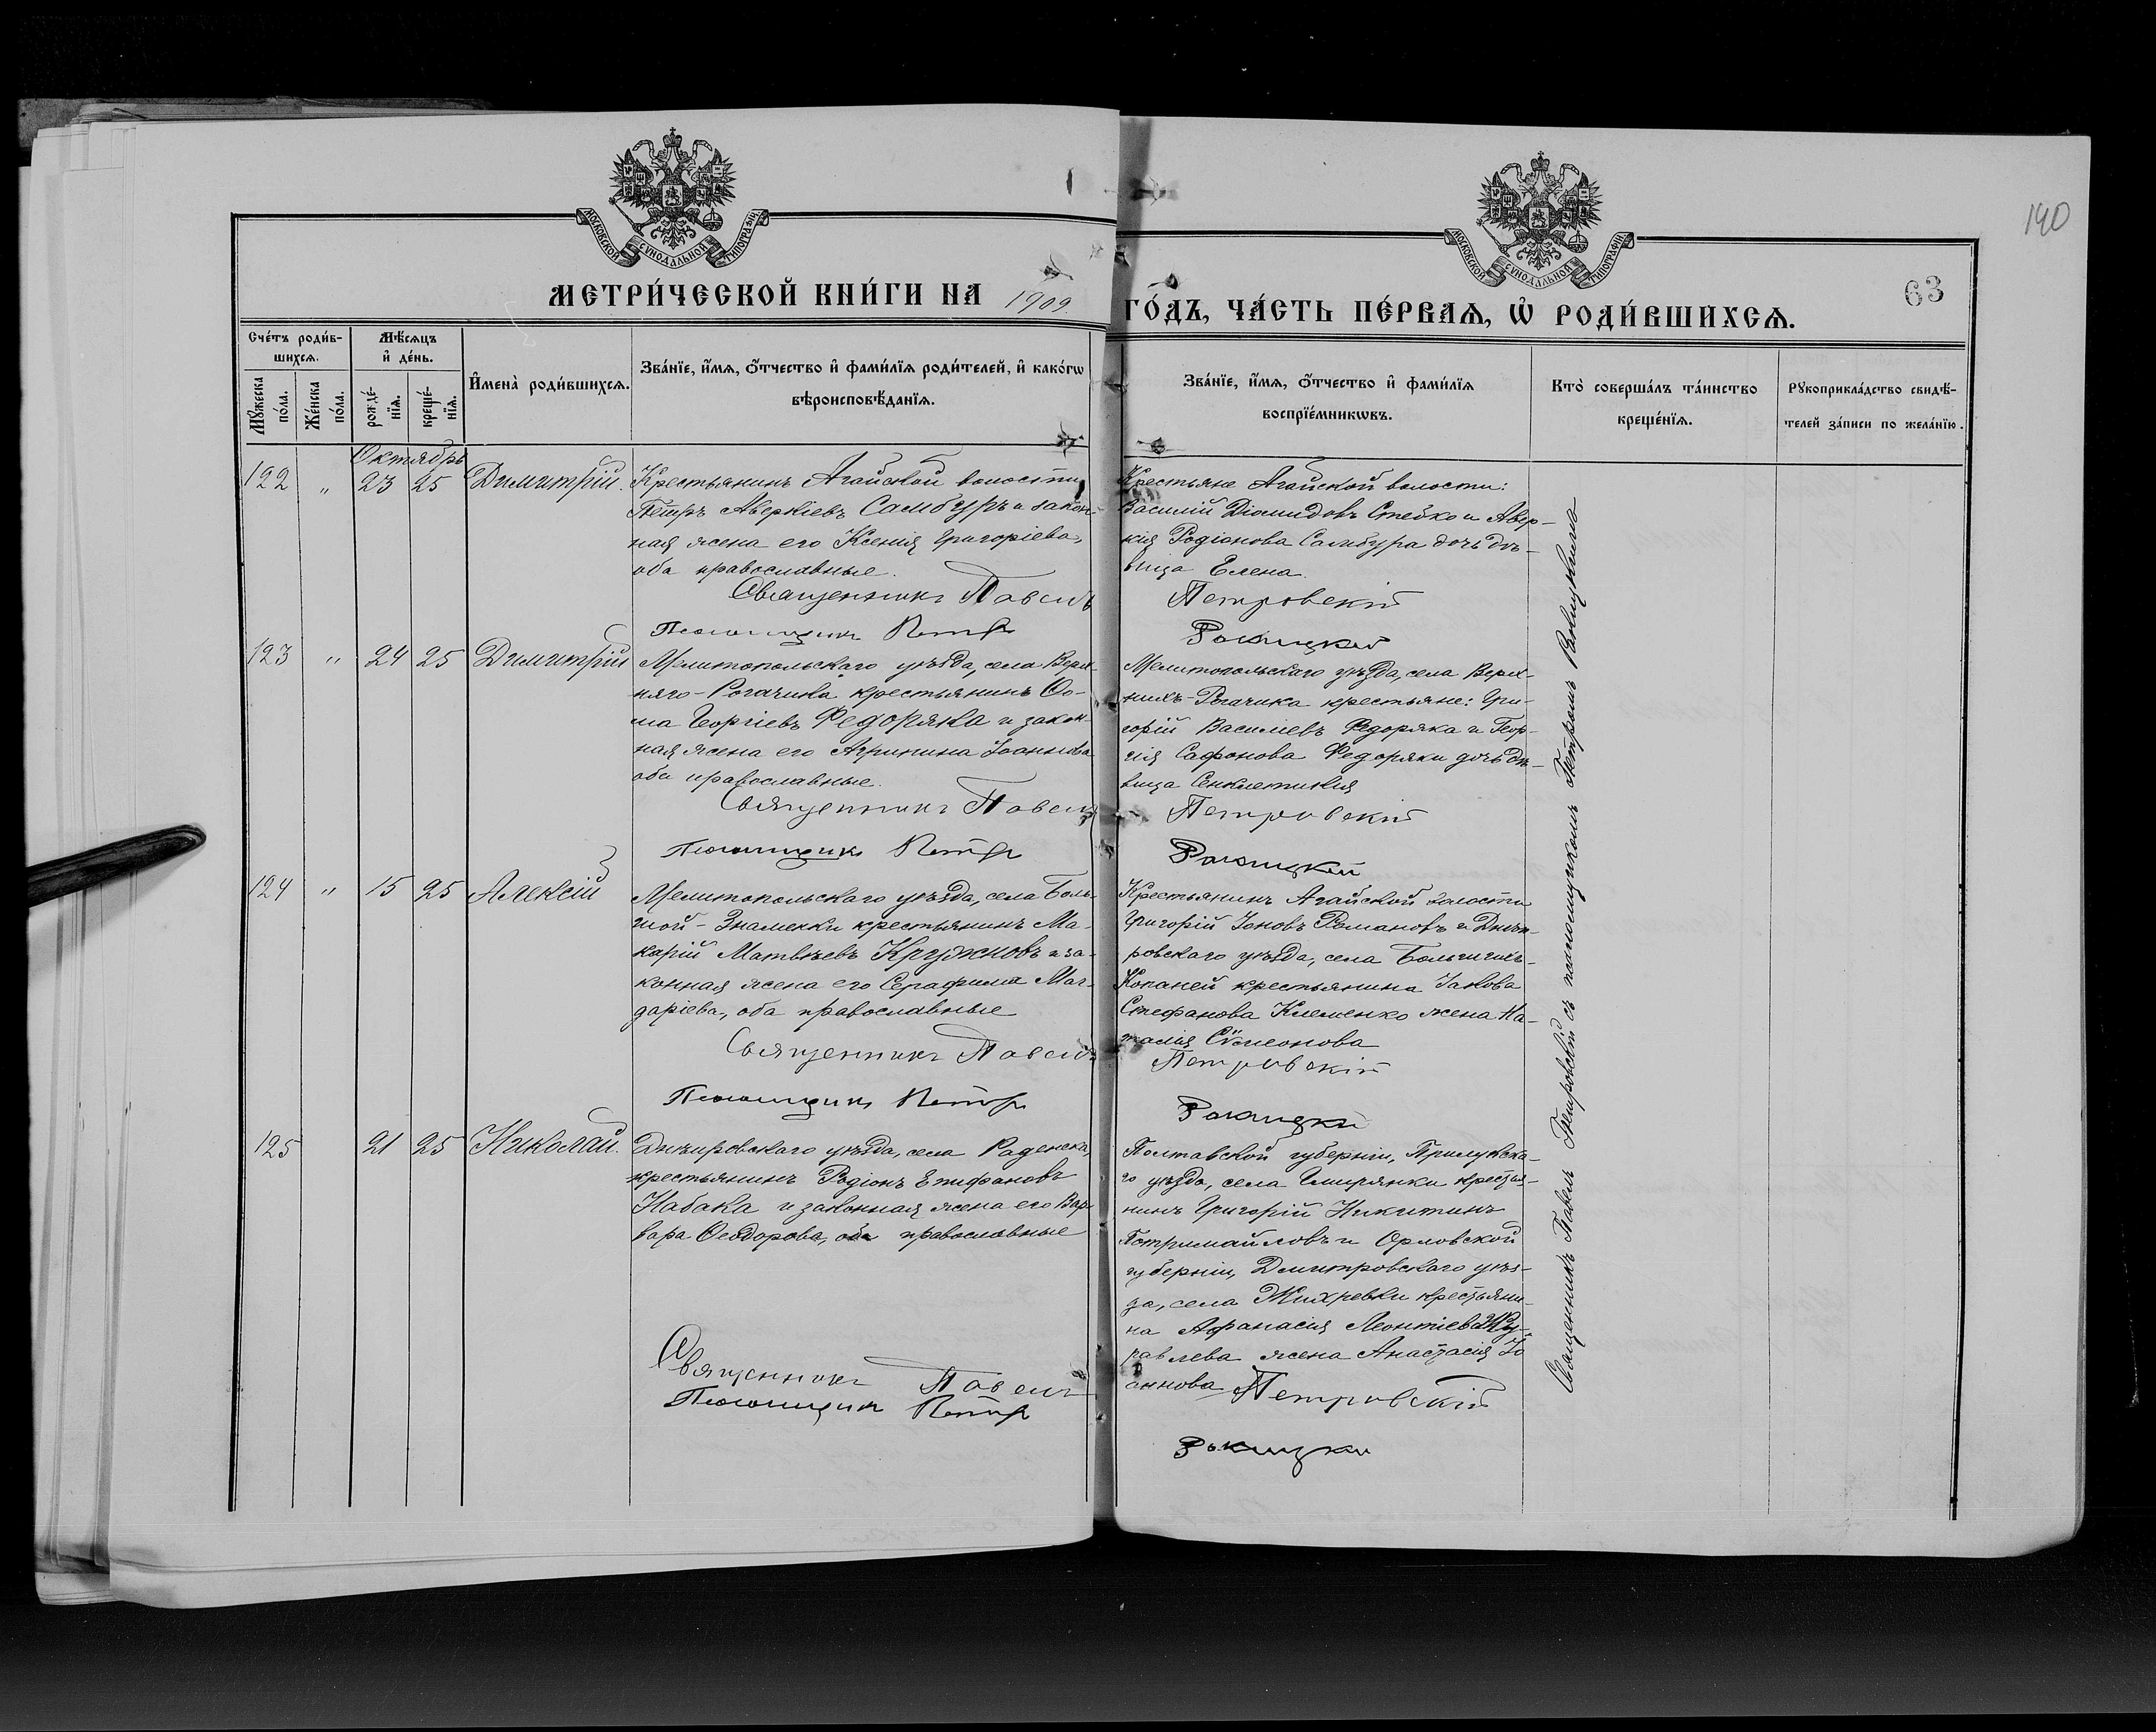 140
63
МОСКОВСКОЙ СѴНОДАЛЬНОЙ ТИПОГРАФІИ
МОСКОВСКОЙ СѴНОДАЛЬНОЙ ТИПОГРАФІИ
МЕТРИ́ЧЕСКОЙ КНИ́ГИ НА 1909. ГО́ДЪ, ЧА́СТЬ ПЕ́РВАѦ, Ѡ҆ РОДИ́ВШИХСѦ.
Сче́тъ роди́в-
шихсѧ.
Мѣ́сѧцъ
и҆ де́нь.
И҆мена̀ роди́вшихсѧ.
Зва́нїе, и҆́мѧ, ѻ҆́тчество и҆ фами́лїѧ роди́телей, и҆ како́гѡ
вѣроисповѣ́данїѧ.
Мꙋ́жеска
по́ла.
Же́нска
по́ла.
рожде́-
нїѧ.
креще́-
нїѧ.
Зва́нїе, и҆́мѧ, ѻ҆́тчество и҆ фами́лїѧ
воспрїе́мникѡвъ.
Кто̀ соверша́лъ та́инство
креще́нїѧ.
Рꙋкоприкла́дство свидѣ́-
телей за́писи по жела́нїю.
Октябрь
122 " 23 25 Димитрій.
Крестьянинъ Агайской волости
Петръ Аверкіевъ Самбуръ и закон-
ная жена его Ксенія Григоріева,
оба православные.
Священникъ Павелъ
Псаломщикъ Петръ
Крестьяне Агайской волости:
Василій Діомидовъ Стейко и Авер-
кія Родіонова Самбура дочь дѣ-
вица Елена.
Петровскій
Рокицкій
123 " 24 25 Димитрій
Мелитопольскаго уѣзда, села Верх-
няго-Рогачика крестьянинъ Ѳо-
ма Георгіевъ Федоряка и закон-
ная жена его Агрипина Іоаннова
оба православные.
Священникъ Павелъ
Псаломщикъ Петръ
Мелитопольскаго уѣзда, села Верх-
нихъ-Рогачика крестьяне: Гри-
горій Василіевъ Федоряка и Геор-
гія Сафонова Федоряки дочь дѣ-
вица Сенклетикія
Петровскій
Рокицкій
124 " 15 25 Алексій
Мелитопольскаго уѣзда, села Боль-
шой-Знаменки крестьянинъ Ма-
карій Матвѣевъ Кружновъ и за-
конная жена его Серафима Мак-
даріева, оба православные
Священникъ Павелъ
Псаломщикъ Петръ
Крестьянинъ Агайской волости
Григорій Іоновъ Романовъ и Днѣп-
ровскаго уѣзда, села Большихъ-
Копаней крестьянина Іакова
Стефанова Клеменко жена На-
талія Сѵмеонова
Петровскій
Рокицкій
125 21 25 Николай.
Днѣпровскаго уѣзда, села Раденска,
крестьянинъ Родіонъ Епифановъ
Кабака и законная жена его Вар-
вара Ѳеодорова, оба православные
Священникъ Павелъ
Псаломщикъ Петръ
Полтавской губерніи, Прилукска-
го уѣзда, села крестья-
нинъ Григорій Никитинъ
Потримайловъ и Орловской
губерніи, Дмитровскаго уѣз-
да, села Жихревки крестьяни-
на Афанасія Леонтіева Жу-
равлева жена Анастасія Іо-
аннова
Петровскій
Рокицкій
Священникъ Павелъ Петровскій съ псаломщикомъ Петромъ Рокицкимъ